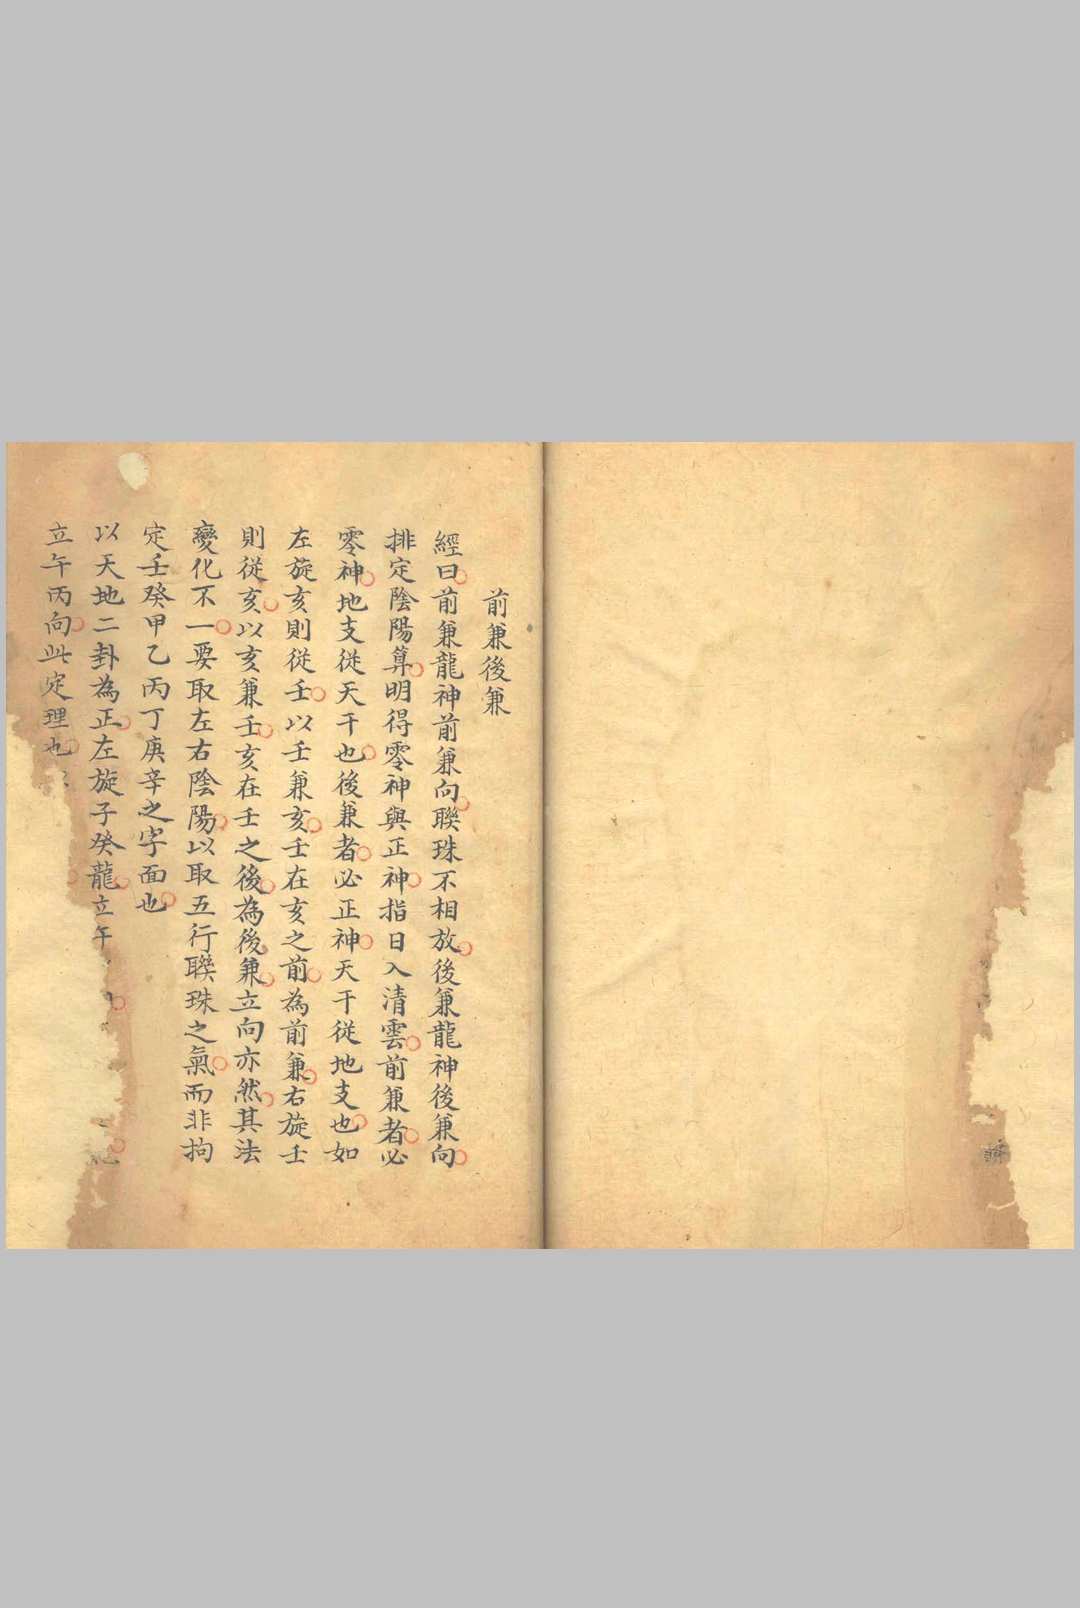 前兼後兼
經曰前兼龍神前兼向聯珠不相放後兼龍神後兼向
排定陰陽算明得零神與正神指日入清雲前兼者必
零神地支從天干也後兼者必正神天干從地支也如
左旋亥則從壬以壬兼亥壬在亥之前為前兼右旋壬
則從亥以亥兼壬亥在壬之後為後兼立向亦然其法
變化不一要取左右陰陽以取五行聯珠之氣而非拘
定壬癸甲乙丙丁庚辛之字面也
以天地二卦為正左旋子癸龍立午
立午丙向此定理也